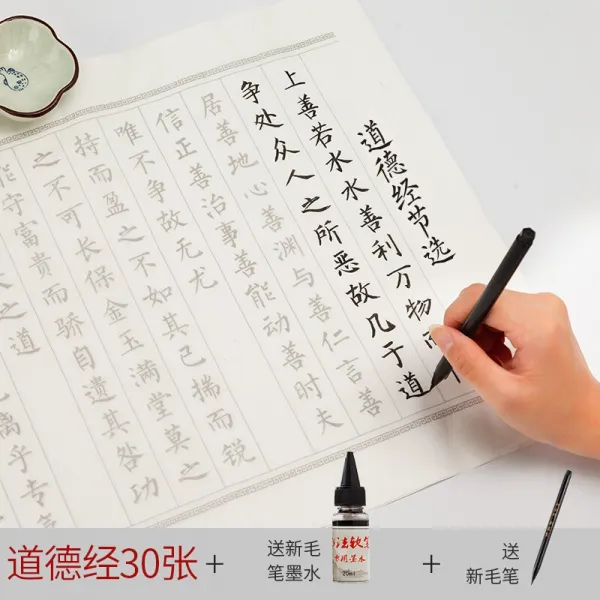 道德经节选
上善若水水善利万物
争处众人之所恶故几于道
居善地心善渊与善仁言善
信正善治事善能动善时夫
唯不争故无尤
持而盈之不如其已揣而锐
之不可长保金玉满堂莫之
能守富贵而骄自遗其咎功
之道
离乎专
道德经30张
+
送新毛
笔墨水
法软笔
用墨水
20ml
+
送
新毛笔